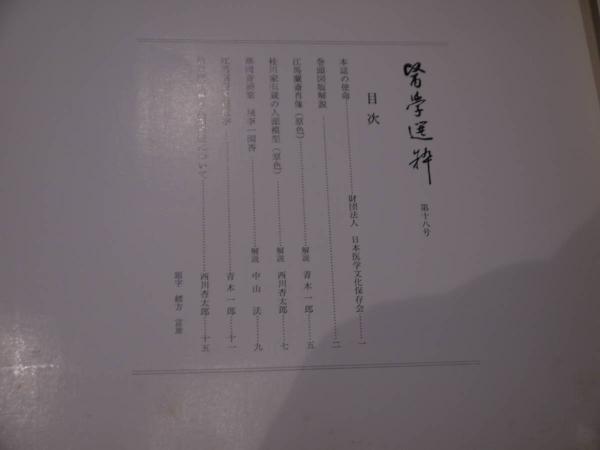 醫學選粋
第十八号
目次
本誌の使命……財団法人 日本医学文化保存会……一
巻頭図版解説……二
江馬蘭斎肖像（原色）……解説 青木一郎……五
桂川家伝蔵の人頭模型（原色）……解説 西川杏太郎……七
解説 中山沃……九
青木一郎……十一
について……西川杏太郎……十五
題字 緒方富雄